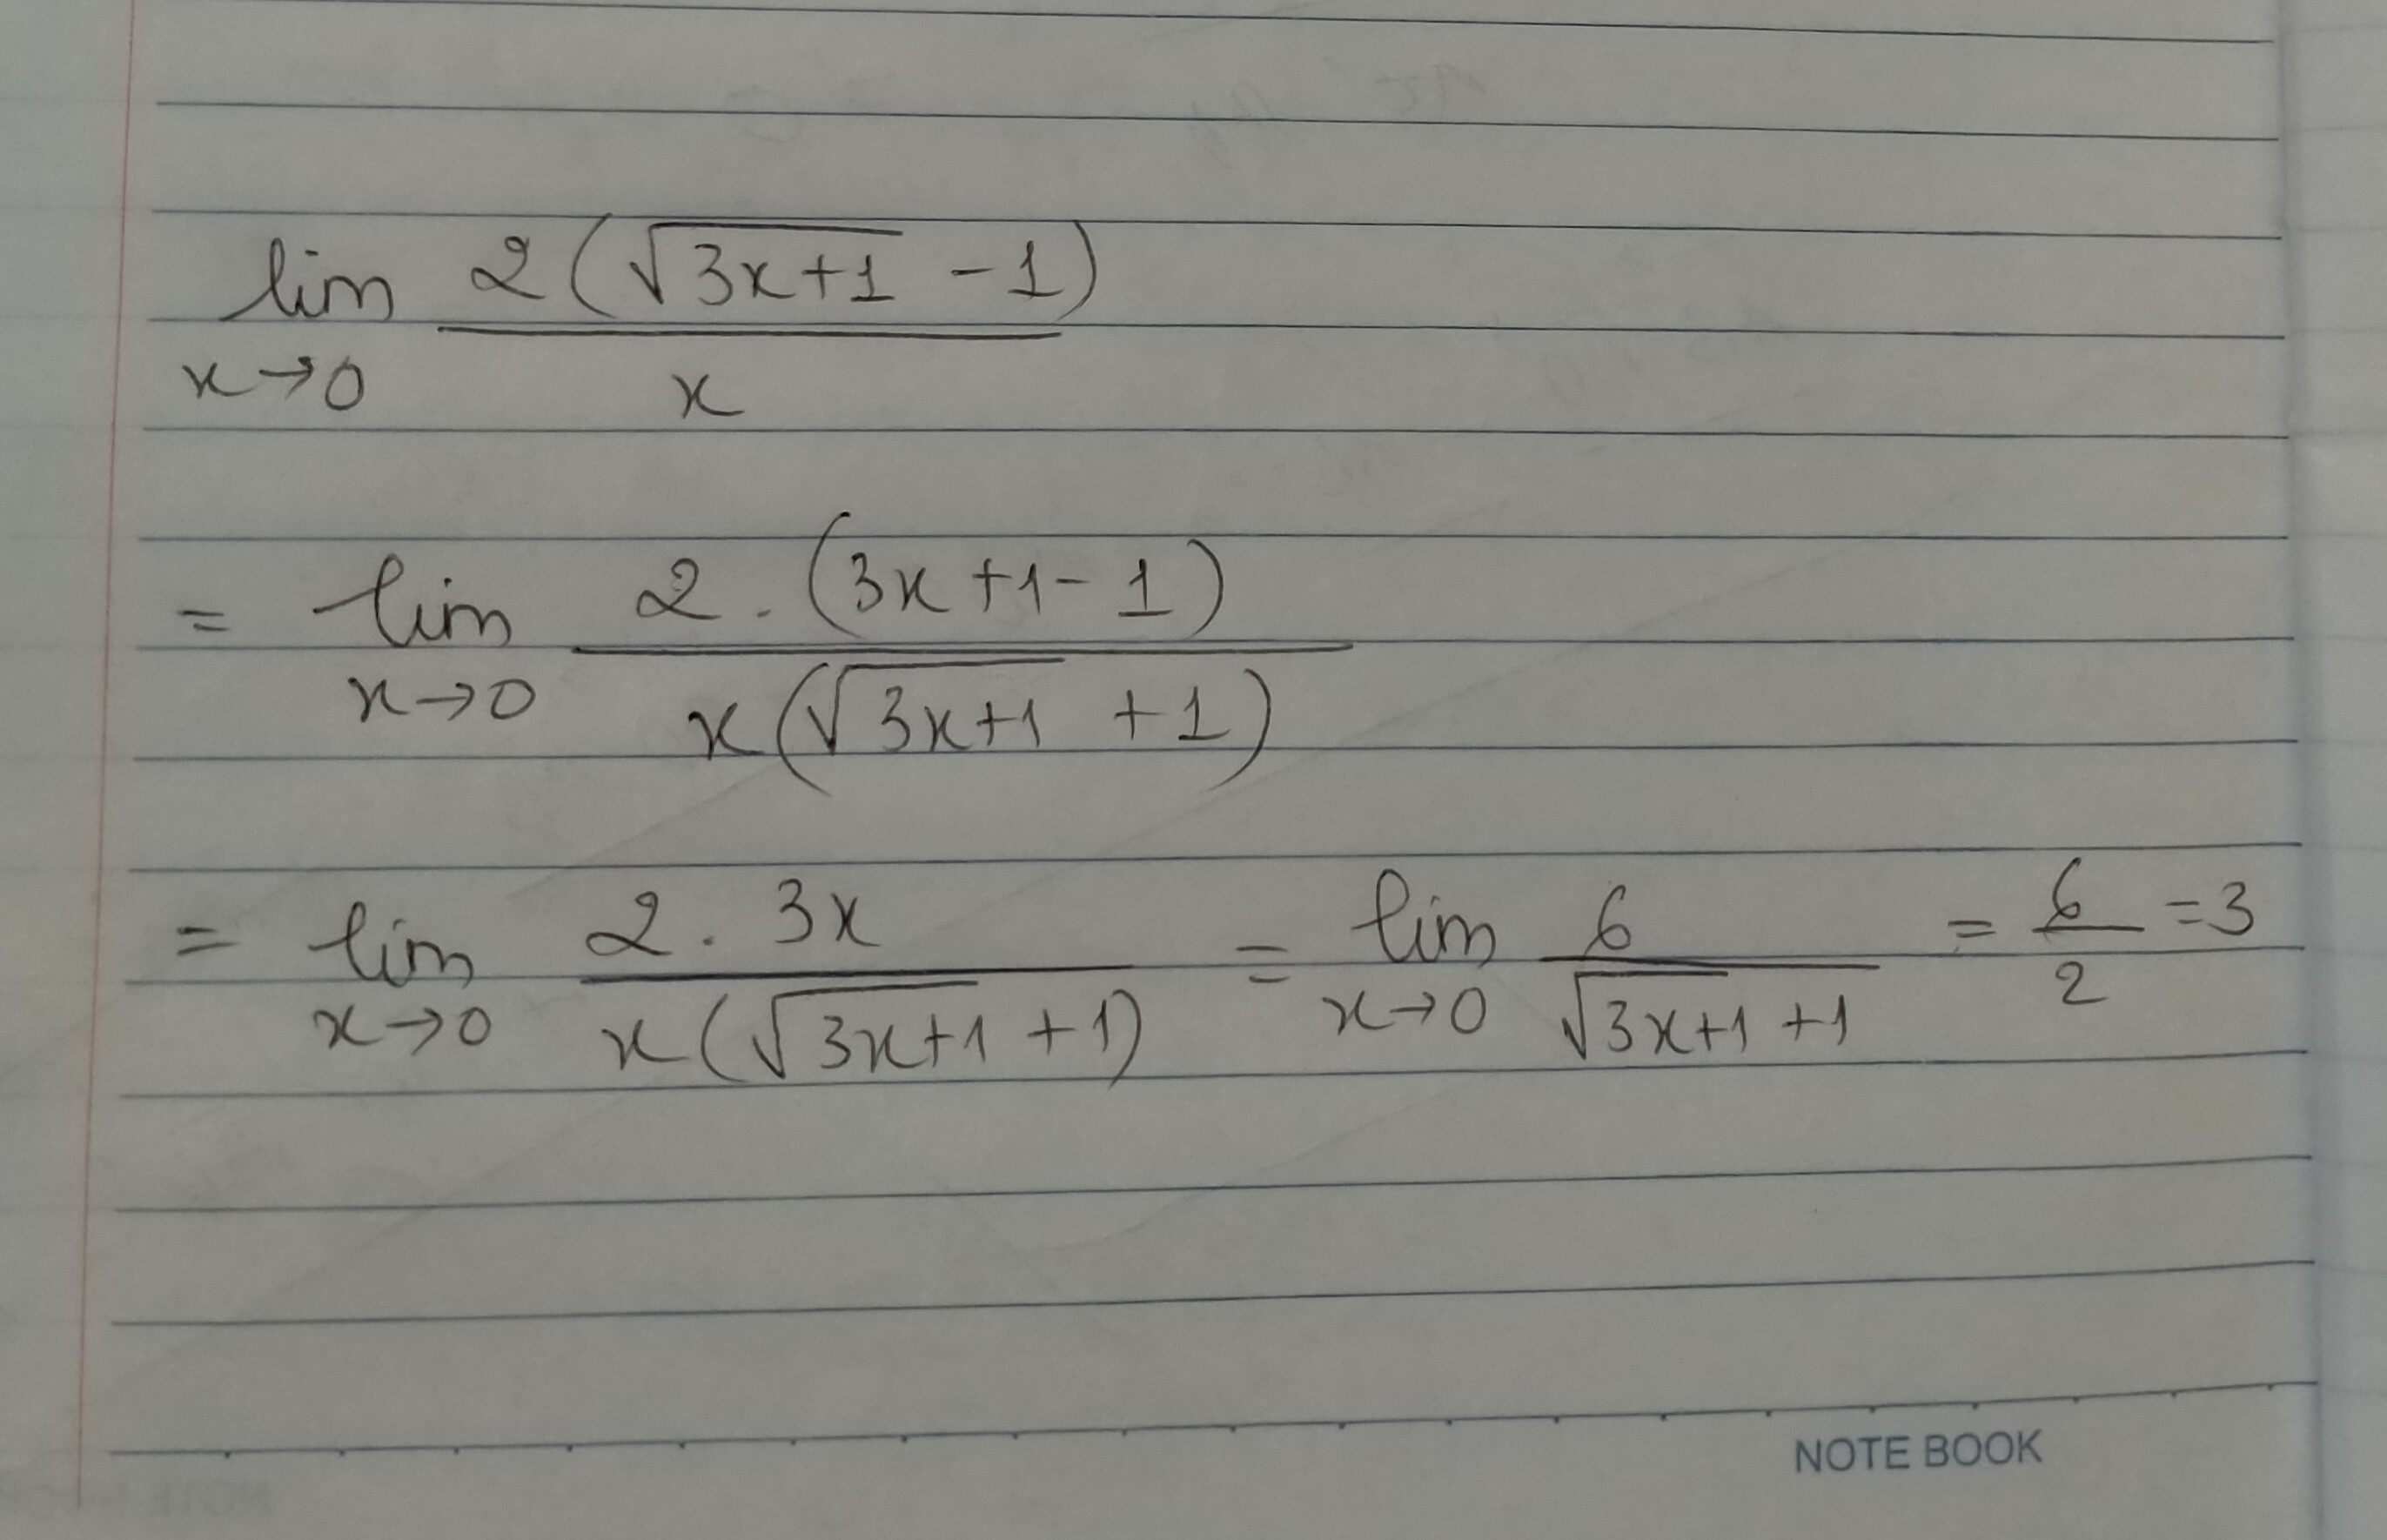 lim x→0 2(√(3x+1) -1) / x
= lim x→0 2.(3x+1-1) / x(√(3x+1) +1)
= lim x→0 2.3x / x(√(3x+1) +1) = lim x→0 6 / √(3x+1) +1 = 6/2 =3
NOTE BOOK